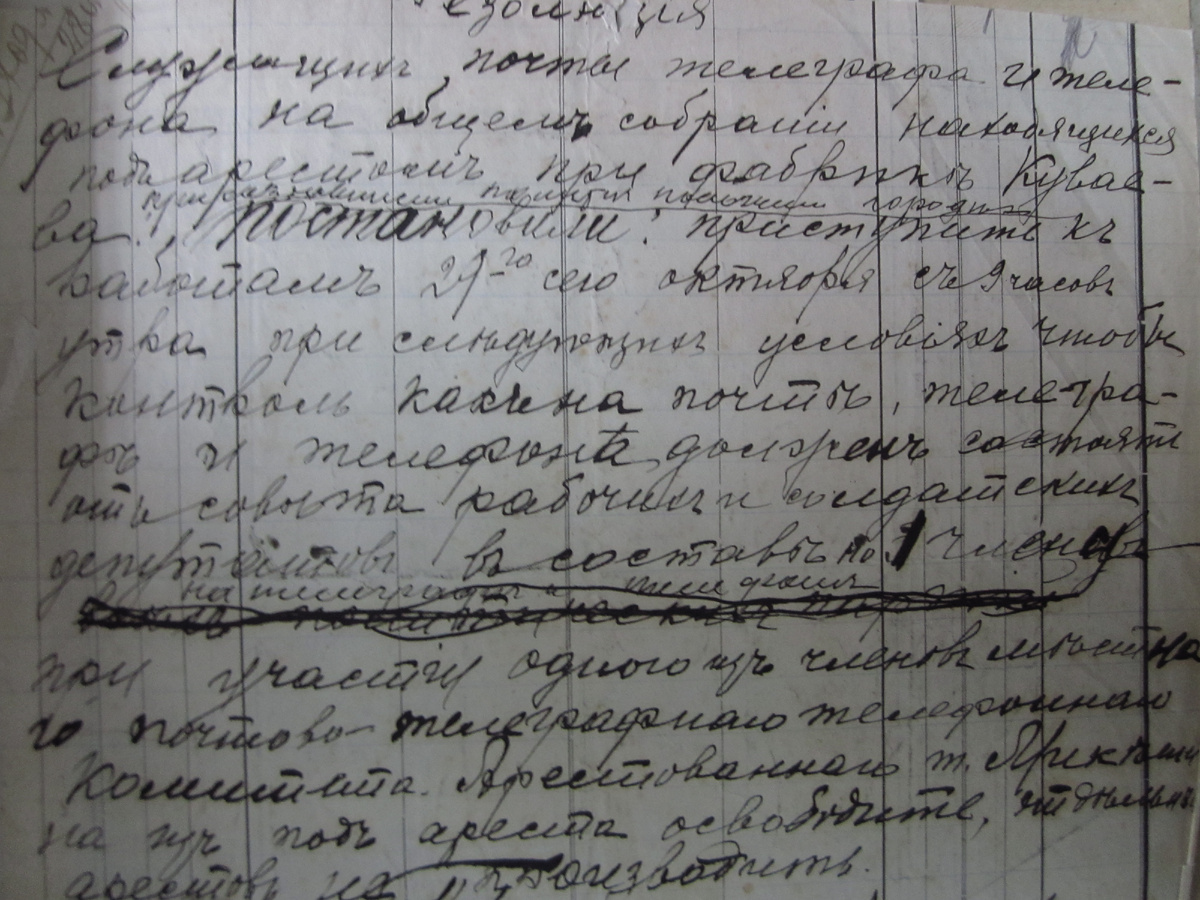 Резолюція
Служащихъ почты телеграфа и теле-
фона на общемъ собраніи находящихся
подъ арестомъ при фабрикѣ Кувае-
ва, постановили: приступить къ
работамъ 29-го сего октября съ 9 часовъ
утра при слѣдующихъ условіяхъ чтобы
контроль какъ на почтѣ, телегра-
фѣ и телефонѣ долженъ состоять
отъ совѣта рабочихъ и солдатскихъ
депутатовъ въ составѣ по 1 членовъ
на телеграфѣ и телефонѣ
при участіи одного изъ членовъ мѣстна
го почтово-телеграфнаго телефоннаго
Комитета. Арестованнаго т.
на изъ подъ ареста освободить, отдѣльныхъ
арестовъ не производить.